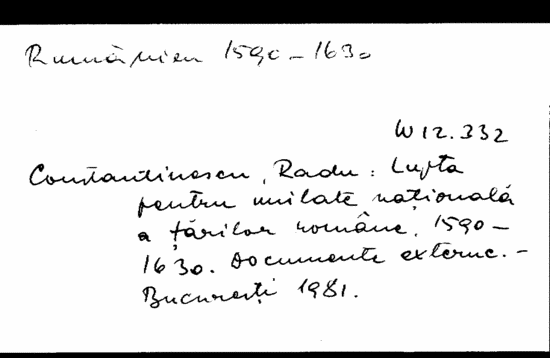 Rumänien 1590-1630
W 12.332
Constantinescu, Radu: Lupta
pentru unitate națională
a țărilor române. 1590-
1630. Documente externe. -
București 1981.